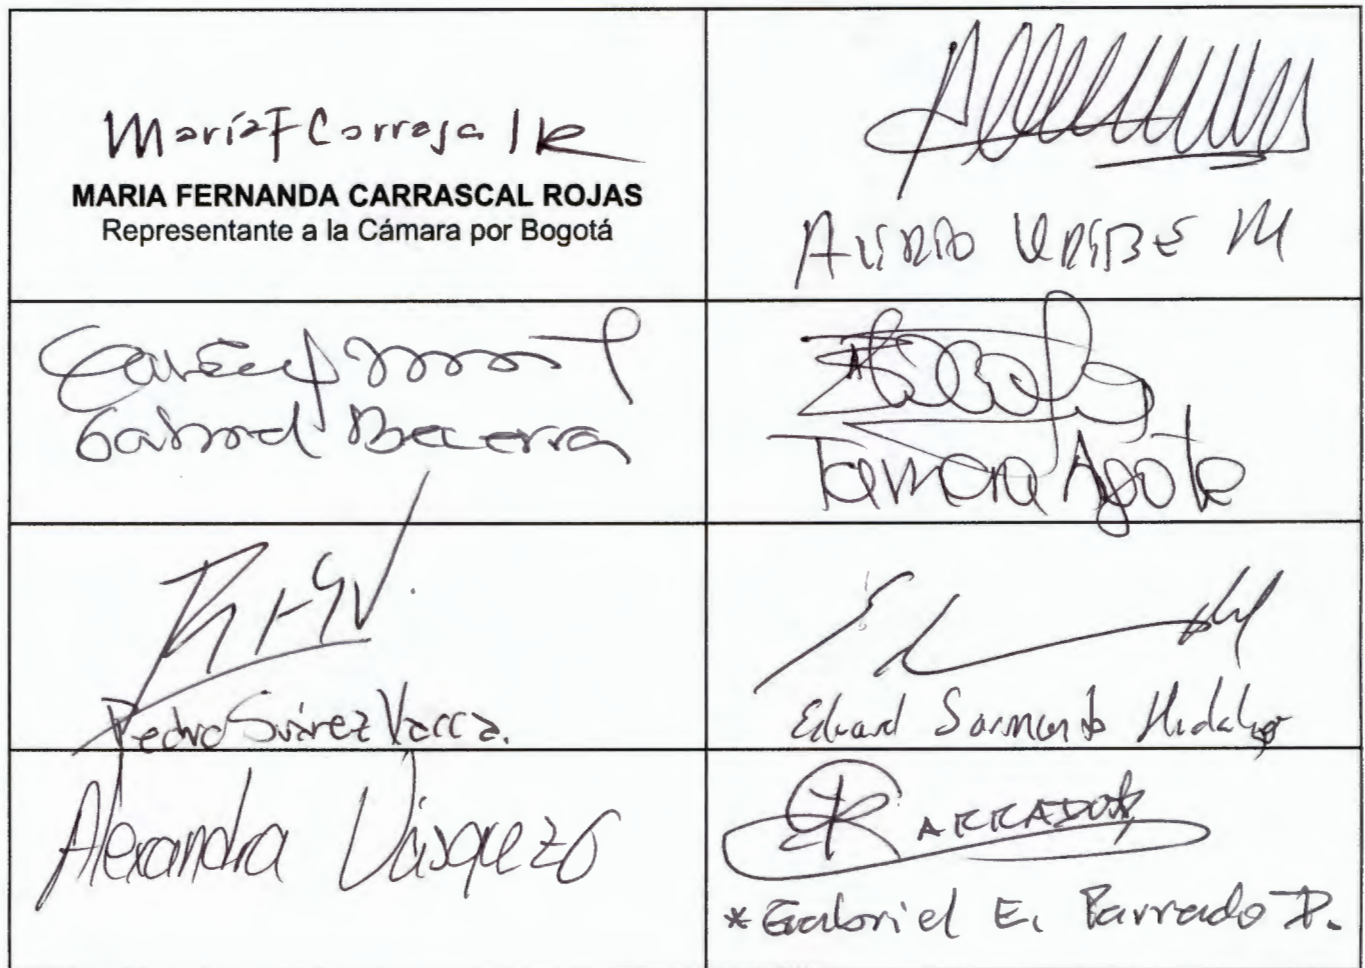 María F Carrascal R
MARIA FERNANDA CARRASCAL ROJAS
Representante a la Cámara por Bogotá
ALIRIO URIBE M
Gabriel Becerra
Tamara Argote
Pedro Suárez Vacca.
Eduard Sarmiento Hidalgo
Alexandra Vásquez
PARRADO
*Gabriel E. Parrado D.